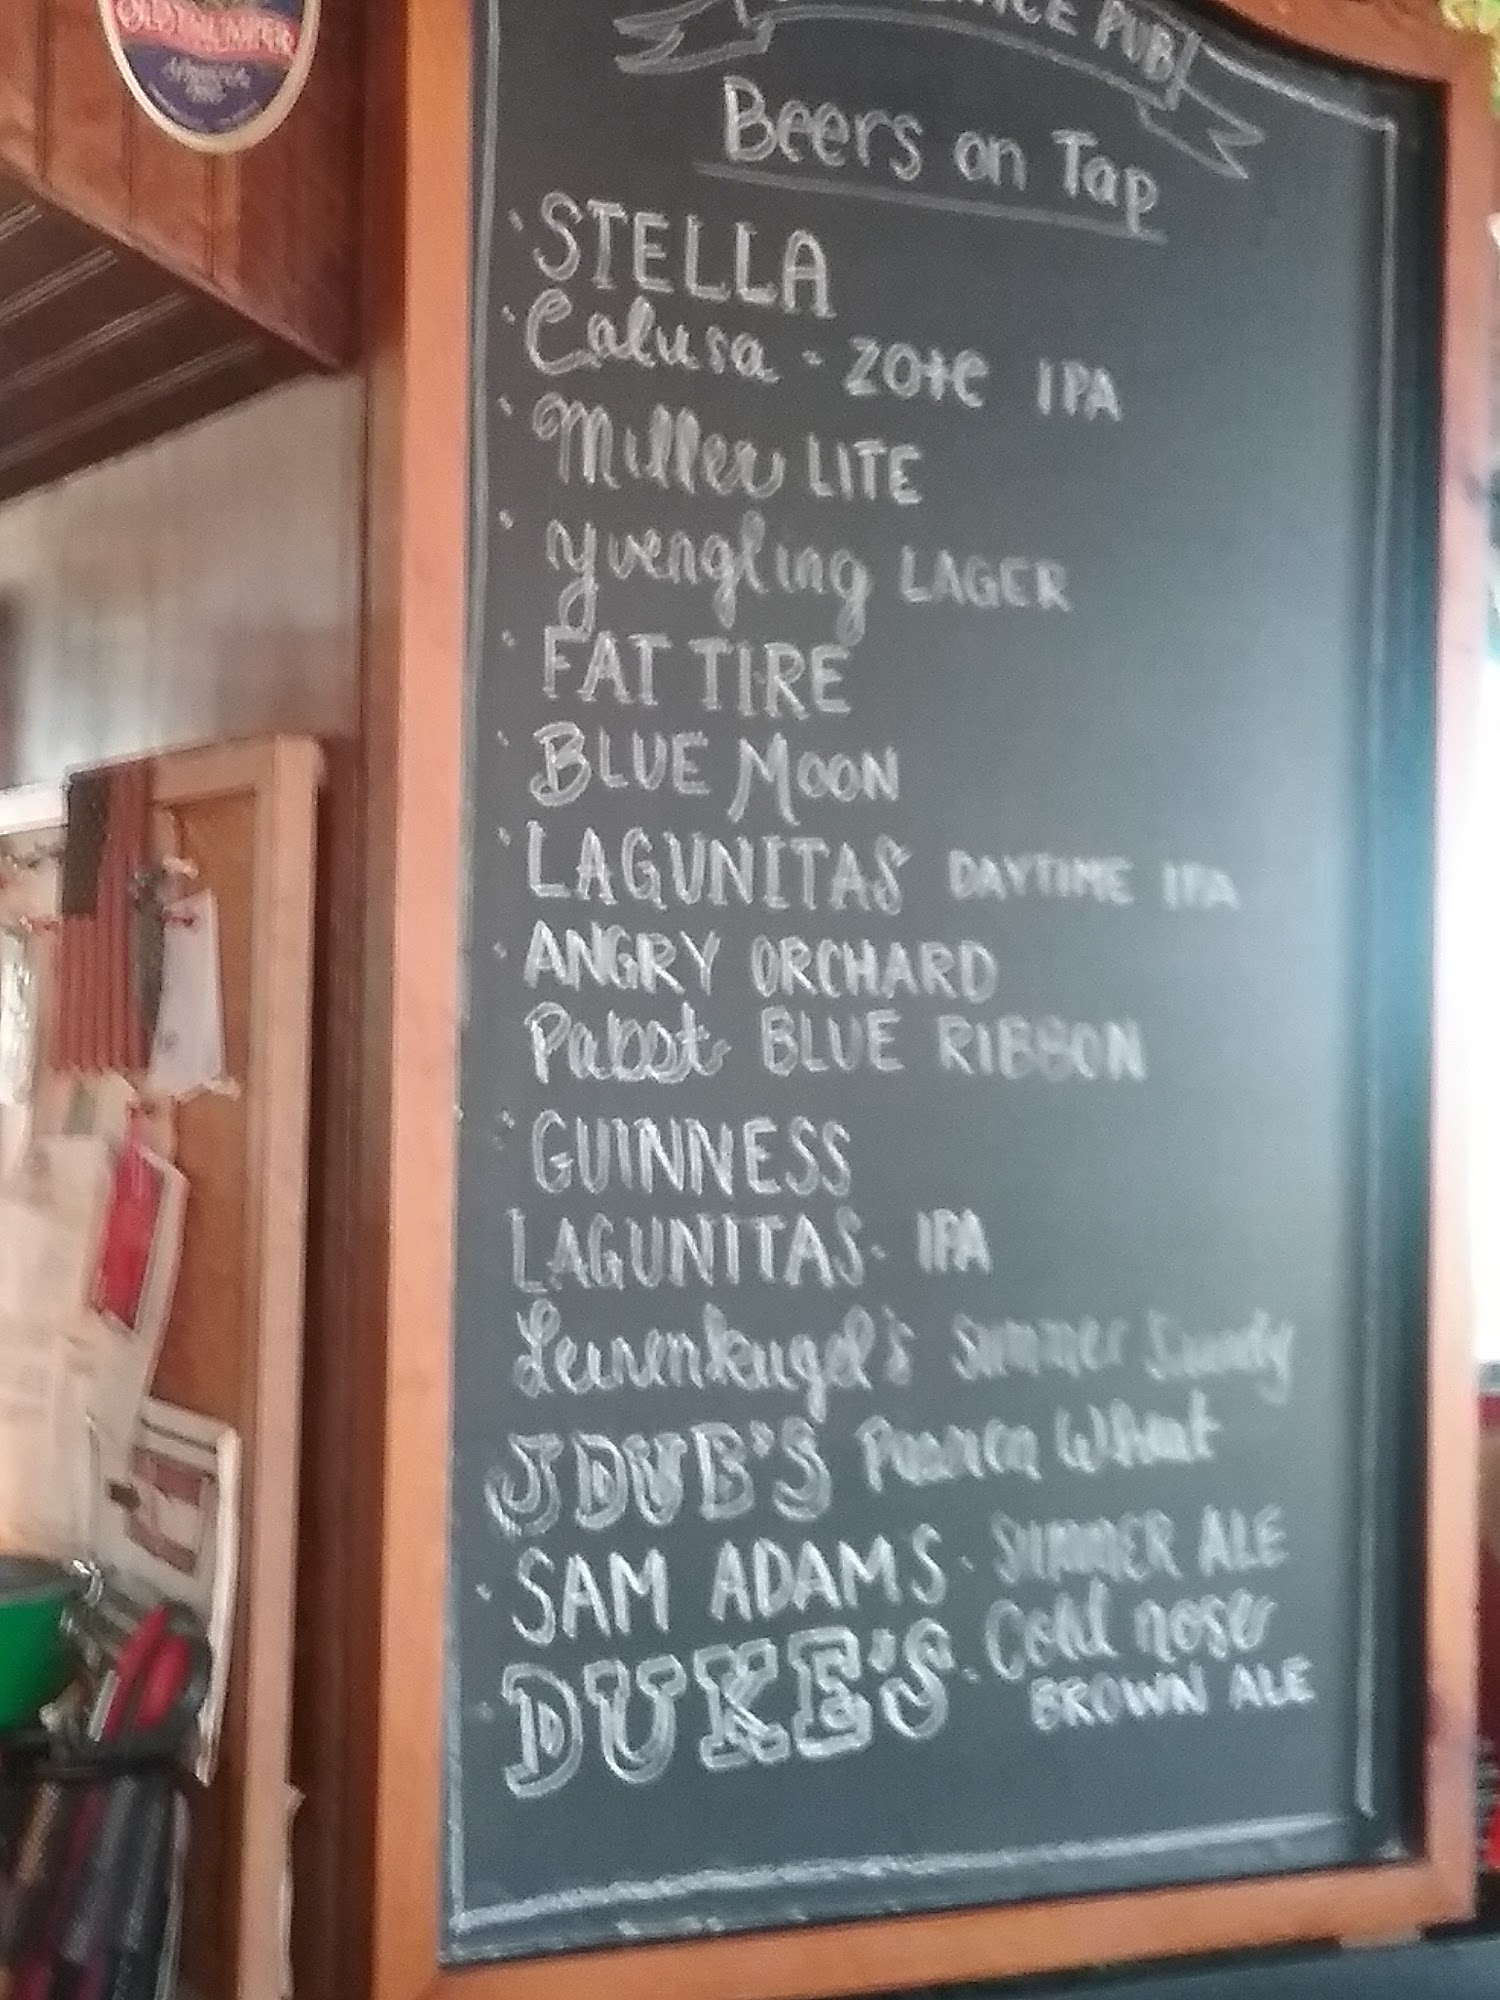 OLD THUMPER
PUB
Beers on Tap
STELLA
Calusa - ZOTE IPA
Miller LITE
Yuengling LAGER
FAT TIRE
BLUE MOON
LAGUNITAS DAYTIME IPA
ANGRY ORCHARD
Pabst BLUE RIBBON
GUINNESS
LAGUNITAS - IPA
Leinenkugel's Summer Shandy
JDUB'S Passion Wheat
SAM ADAMS - SUMMER ALE
DUKE'S - Cold nose
BROWN ALE